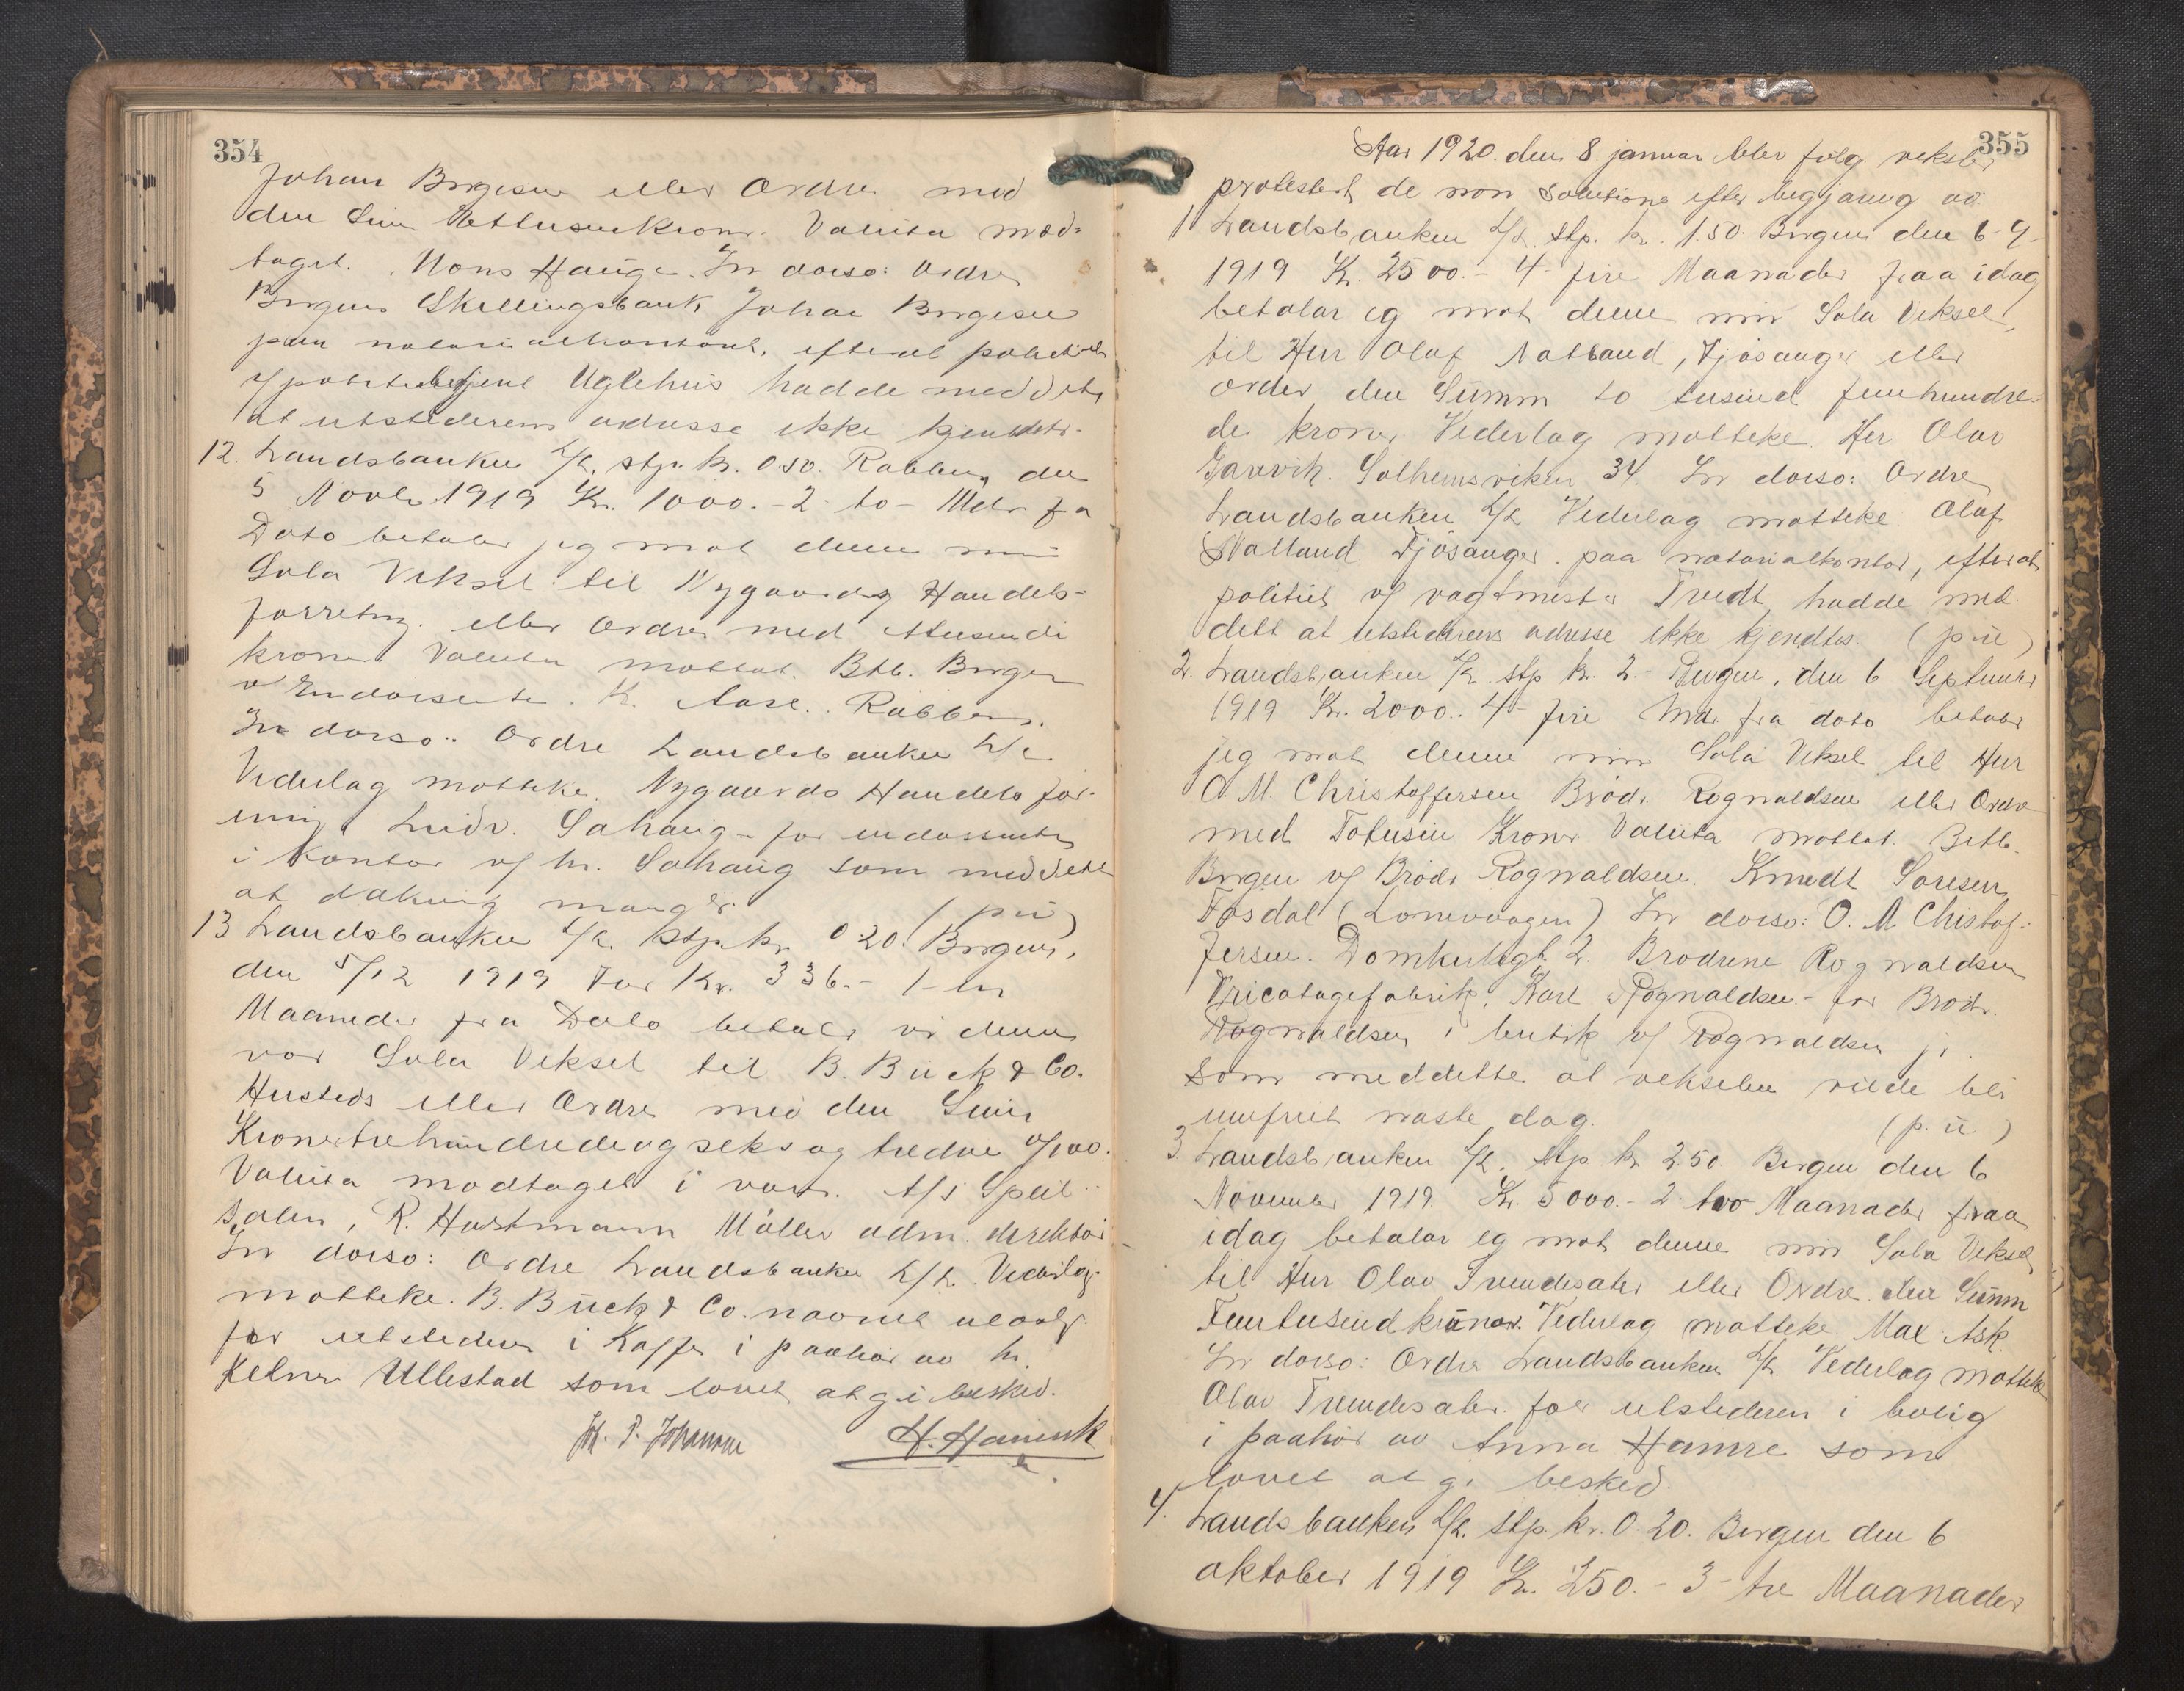 354
Johan Børgesen eller Ordre med
den Sum Ettusenkroner. Valuta mod-
taget. Mons Hauge. In dorso: Ordre
Bergens Skillingsbank Johan Børgesen
paa notarialkontoret, efterat politiet
v/ politibetjent Uglehus hadde meddelt
at utstederens adresse ikke kjendtes.
12. Landsbanken A/L. stp. kr. 0.50. Rabben, den
5 Novbr 1919 Kr. 1000.- 2 to - Mdr fra
Dato betaler jeg mot denne min
Sola Veksel til Nygaards Handels-
forretng. eller Ordre med ettusende
kroner Valuta mottat. Btb. Bergen
v Endorsenten. K. Aase. Rabben.
In dorso: Ordre Landsbanken A/L
Vederlag motteke. Nygaards Handelsfor-
ening Ludv. Sahaug - for endossenten
i Kontor v/ hr. Sahaug som meddelte
at dækning mangler. (p ū)
13 Landsbanken A/L. stp. kr. 0.20. Bergen,
den 5/12 1919 For Kr. 336.- 1 - en
Maaneder fra Dato betaler vi denne
vor Sola Veksel til B. Bück & Co.
Husteds eller Ordre med den Sum
Kroner trehundredeogseksogtredve 0/100.
Valuta modtaget i varer. A/S Speil-
salen, R. Horstmann Möller adm. direktør
In dorso: Ordre Landsbanken A/L. Vederlag
motteke. B. Bück & Co.
for utstederen i Kaffe i paahør av hr.
Kelner Ullestad som lovet at gi besked.
Joh. P. Johannesen H.
355
Aar 1920. den 8. januar blev følg veksler
protestert de non solutione efter begjæring av:
1. Landsbanken A/L. stp. kr. 1.50. Bergen den 6-9-
1919 Kr. 2500.- 4- fire Maanader fraa idag
betalar eg mot denne min Sola Veksel,
til Herr Olaf Natland, Fjøsanger eller
order den Summ to tusind femhundre-
de kroner. Vederlag motteke. Her Olav
Garvik. Solheimsviken 34. In dorso: Ordre
Landsbanken A/L Vederlag motteke Olaf
Natland Fjøsanger. paa notarialkontor, efterat
politiet v/ vagtmester Tvedt hadde med-
delt at utstederens adresse ikke kjendtes. (p ū)
2. Landsbanken A/L. stp kr. 2.- Bergen, den 6 September
1919 Kr. 2000.. 4- fire Mdr fra dato betaler
jeg mot denne min Sola Veksel til Herr
O. M. Christoffersen Brødr. Rognaldsen eller Ordre
med Totusin Kroner Valuta mottat. Betb.
Bergen v/ Brødr Rognvaldsen. Knudt Sørensen
Fosdal (Lonevaagen) In dorso: O. M. Chistof-
fersen. Domkirkegt. 2. Brødrene Rognvaldsen
Tricotagefabrik, Karl Rognaldsen - for Brødr.
Rognvaldsen i butik v/ Rognvaldsen jr.
som meddelte at vekselen vilde bli
innfriet næste dag. (p. ū.)
3. Landsbanken A/L. stp kr 2.50 Bergen den 6
November 1919. Kr. 5000.- 2- tvo Maanader fraa
idag betalar eg mot denne min Sola Veksel
til Herr Olav Tveudesater eller Ordre den Summ
Femtusindkrūnor. Vederlag motteke Max Ask.
In dorso: Ordre Landsbanken A/L. Vederlag motteke
Olav Tveudesater. for utstederen i bolig
i paahør av Anna Hamre som
lovet at gi besked.
4. Landsbanken A/L. stp. kr. 0.20. Bergen den 6
oktober 1919 Kr. 250.- 3- tre Maanader